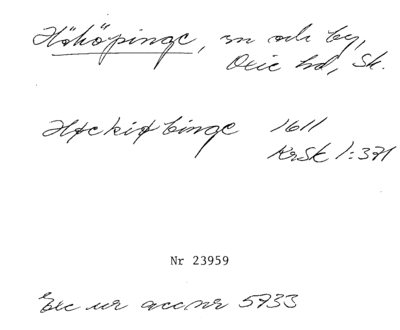 Hököpinge, sn och by,
Oxie hd, Sk.
Høckiøbinge 1611
KrSk 1:371
Nr 23959
Exc ur accnr 5733